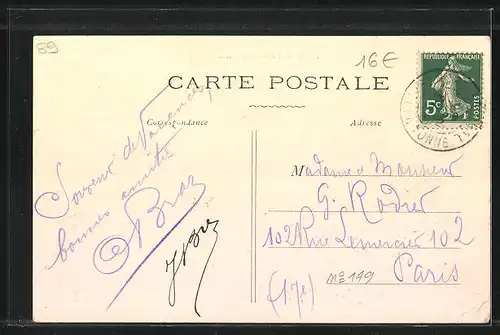 89
16€
RÉPUBLIQUE FRANÇAISE
5c
POSTES
CARTE POSTALE
Correspondance
Adresse
Souvenir de Vacances
bonnes amitiés
Madame & Monsieur
G. Rodier
102 Rue Lemercier 102
Paris
(17e)